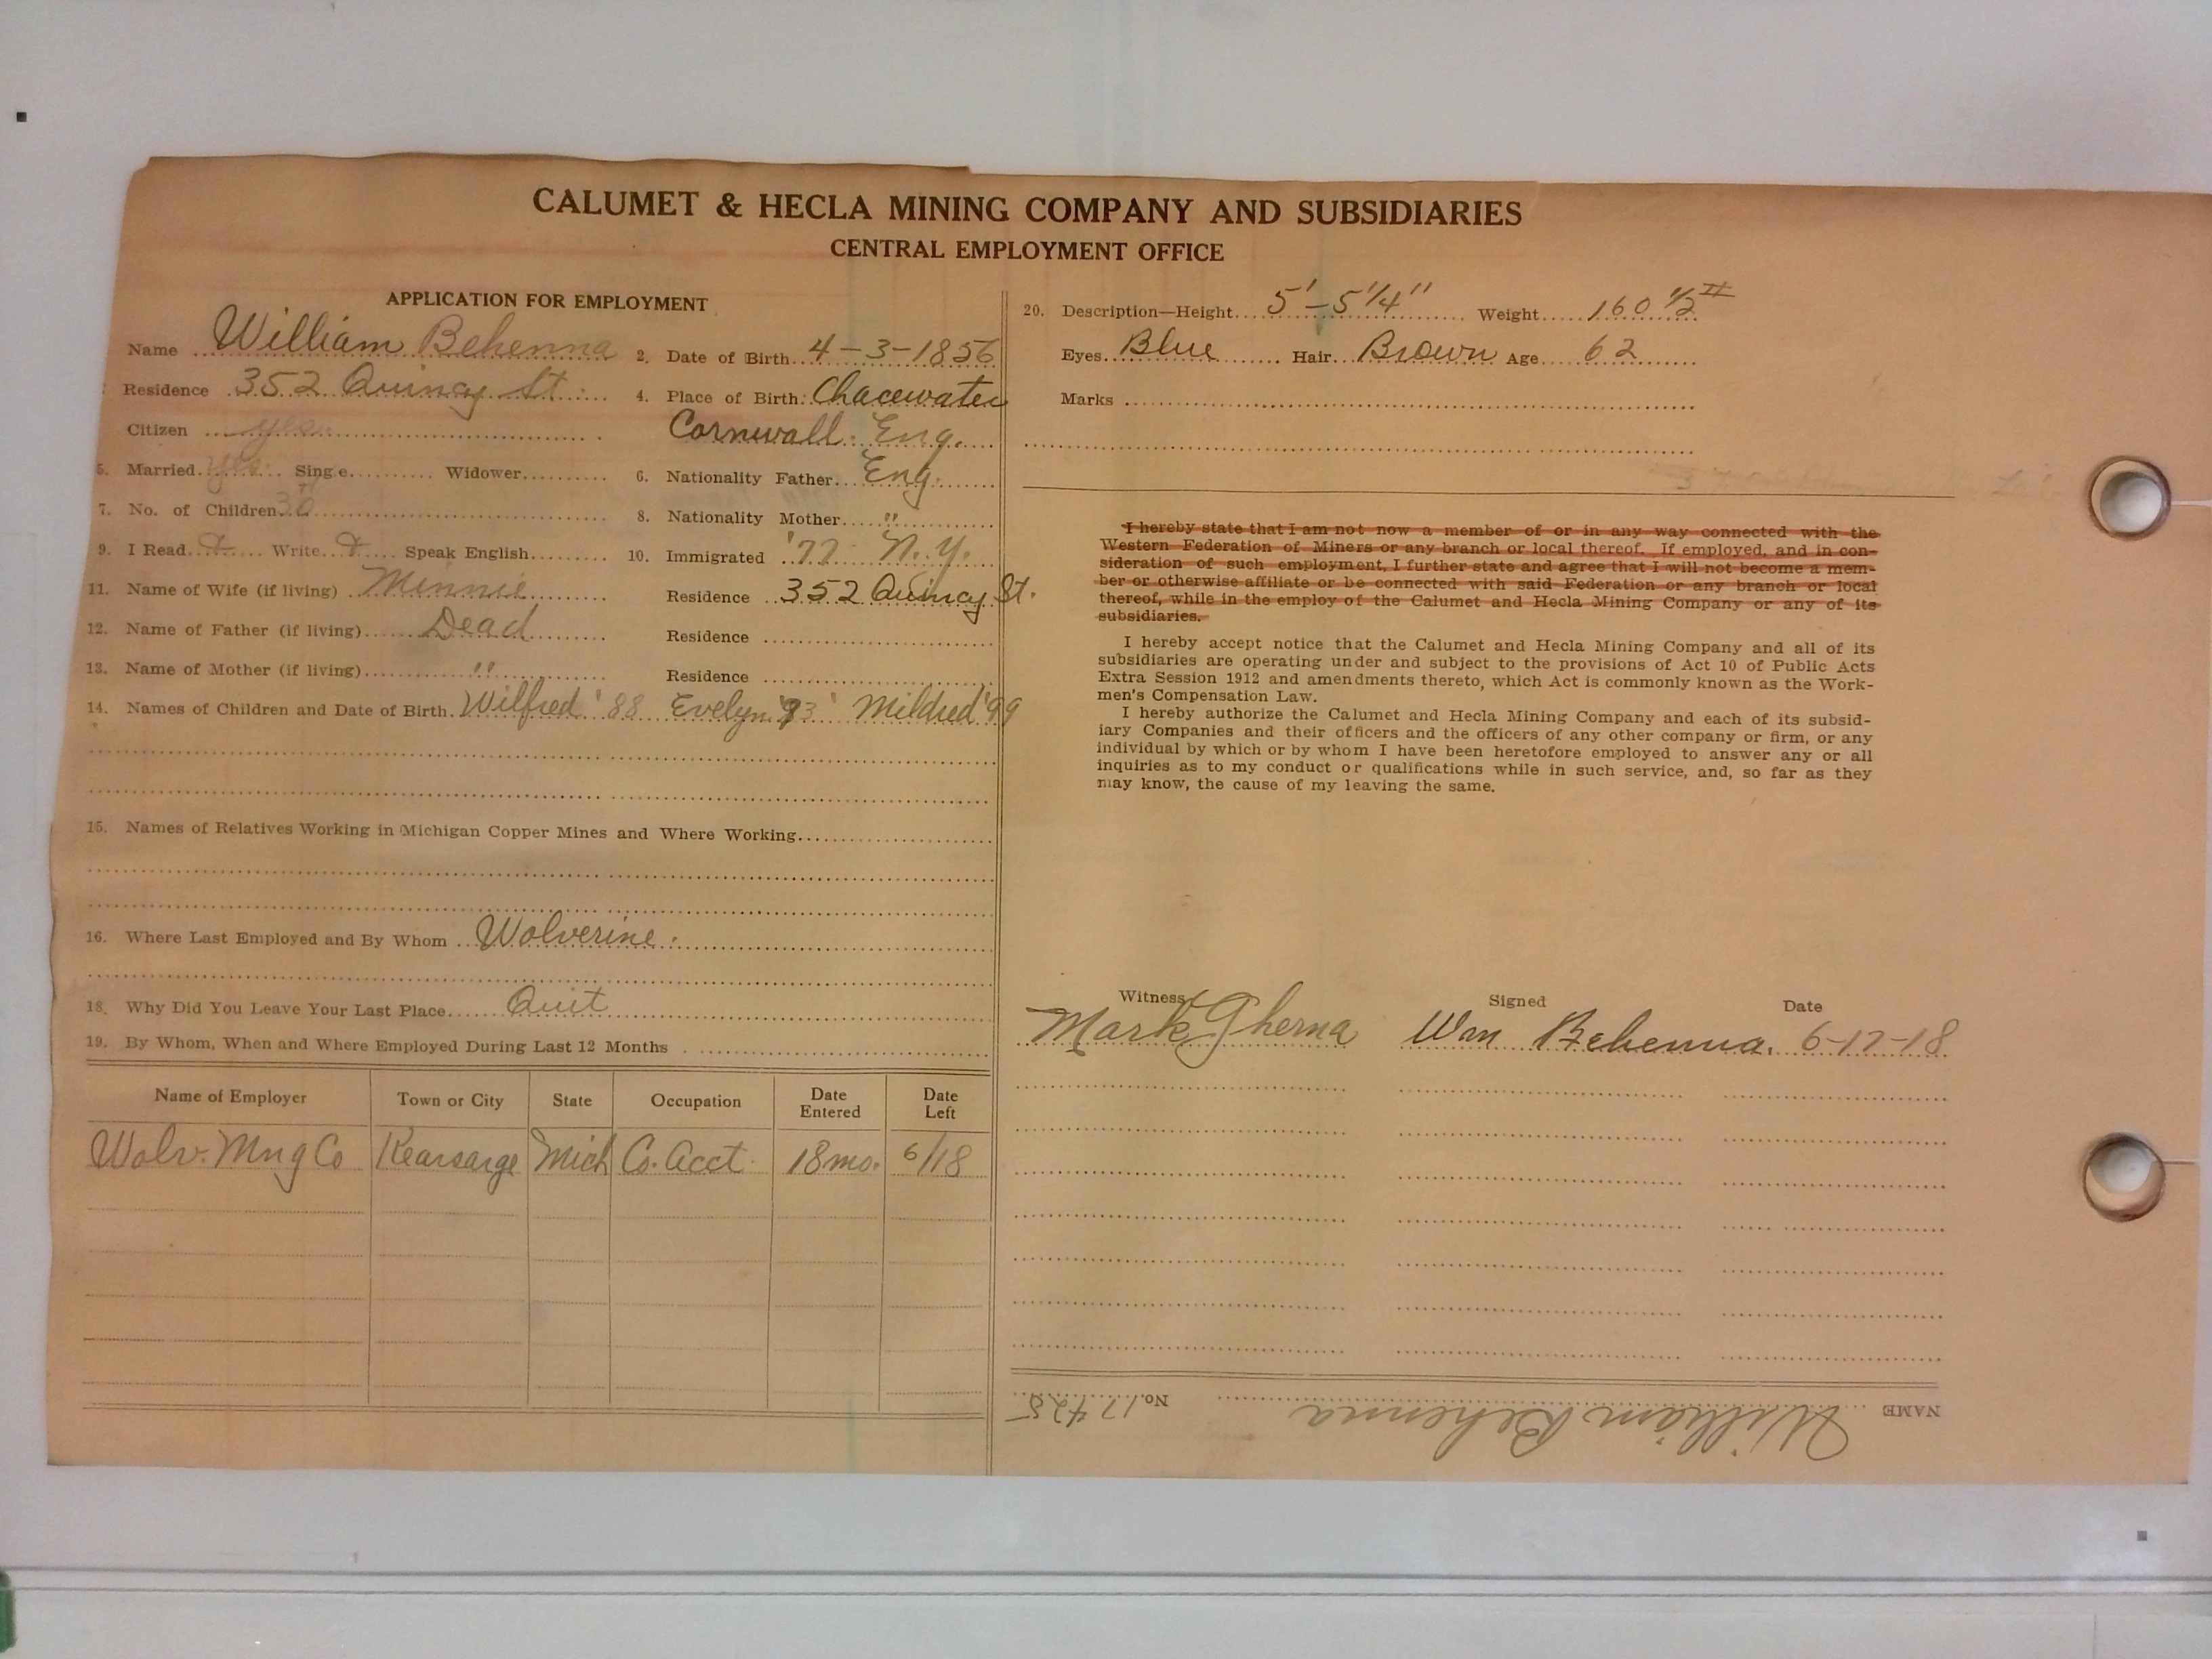 CALUMET & HECLA MINING COMPANY AND SUBSIDIARIES
CENTRAL EMPLOYMENT OFFICE
APPLICATION FOR EMPLOYMENT
Name William Behenna 2. Date of Birth 4-3-1856
Residence 352 Quincy St. 4. Place of Birth: Chacewater
Citizen yes Cornwall Eng.
5. Married yes Single Widower 6. Nationality Father Eng.
7. No. of Children 3 8. Nationality Mother "
9. I Read Write Speak English 10. Immigrated '77 N.Y.
11. Name of Wife (if living) Minnie Residence 352 Quincy St.
12. Name of Father (if living) Dead Residence
13. Name of Mother (if living) " Residence
14. Names of Children and Date of Birth Wilfred '88 Evelyn '93 Mildred '99
15. Names of Relatives Working in Michigan Copper Mines and Where Working
16. Where Last Employed and By Whom Wolverine.
18. Why Did You Leave Your Last Place Quit
19. By Whom, When and Where Employed During Last 12 Months
Name of Employer Town or City State Occupation Date Entered Date Left
Wolv. Mng Co Kearsarge Mich Co. Acct. 18 mo. 6/18
20. Description—Height 5'-5 1/4" Weight 160 1/2 #
Eyes Blue Hair Brown Age 62
Marks
I hereby state that I am not now a member of or in any way connected with the
Western Federation of Miners or any branch or local thereof. If employed, and in con-
sideration of such employment, I further state and agree that I will not become a mem-
ber or otherwise affiliate or be connected with said Federation or any branch or local
thereof, while in the employ of the Calumet and Hecla Mining Company or any of its
subsidiaries.
I hereby accept notice that the Calumet and Hecla Mining Company and all of its
subsidiaries are operating under and subject to the provisions of Act 10 of Public Acts
Extra Session 1912 and amendments thereto, which Act is commonly known as the Work-
men's Compensation Law.
I hereby authorize the Calumet and Hecla Mining Company and each of its subsid-
iary Companies and their officers and the officers of any other company or firm, or any
individual by which or by whom I have been heretofore employed to answer any or all
inquiries as to my conduct or qualifications while in such service, and, so far as they
may know, the cause of my leaving the same.
Witness Signed Date
Mark Gherna Wm Behenna. 6-17-18
NAME William Behenna No. 17425